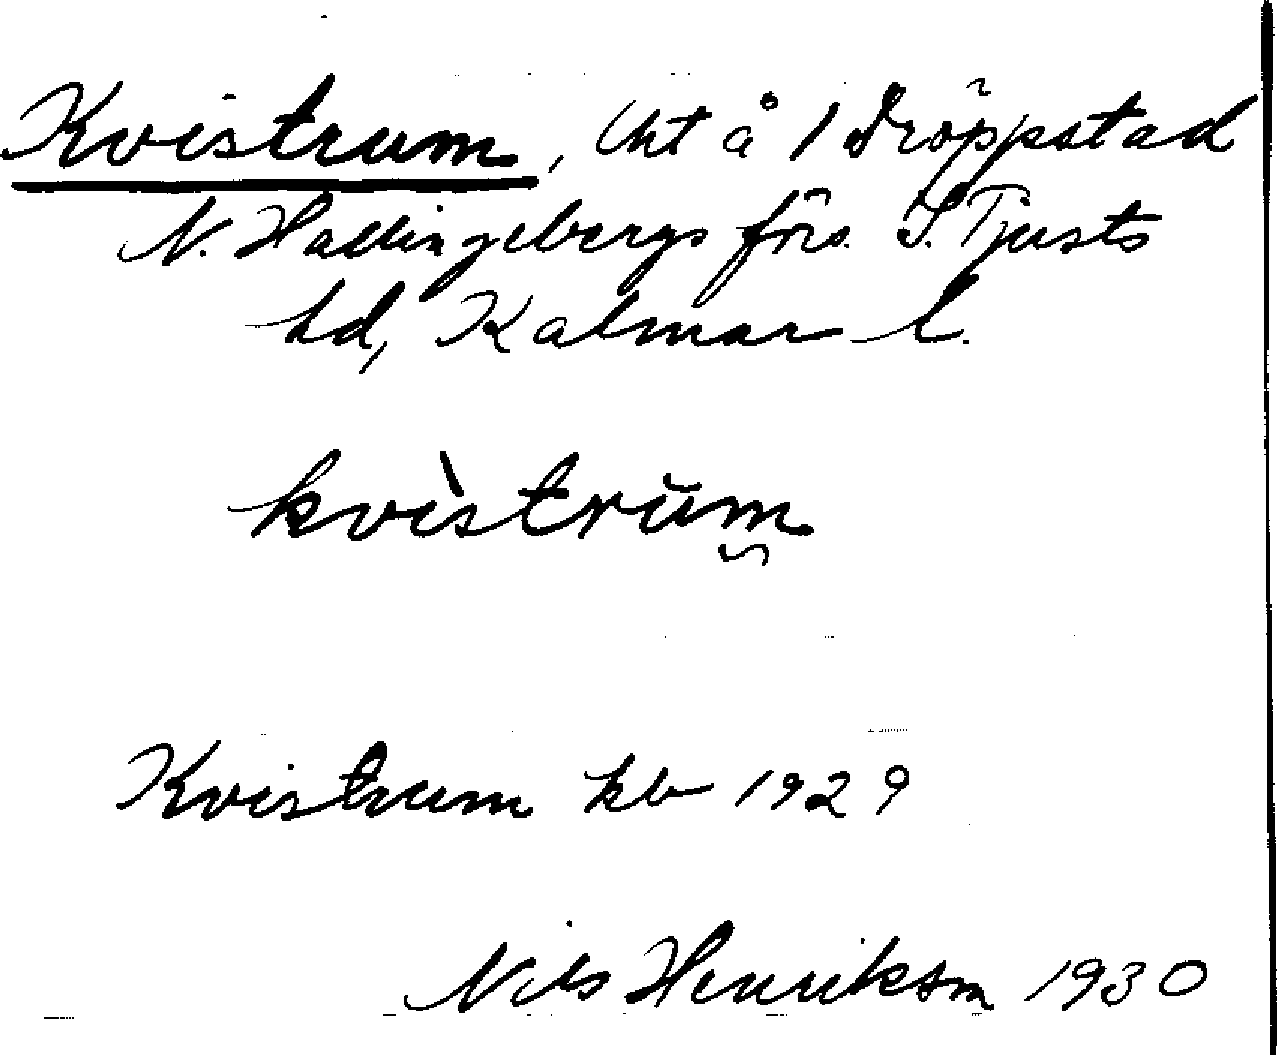 Kvistrum, lht å 1 Dröppstad
N. Hallingebergs förs. S. Tjusts
hd, Kalmar l.
kvìstrŭm
Kvistrum kb 1929
Nils Henrikson 1930